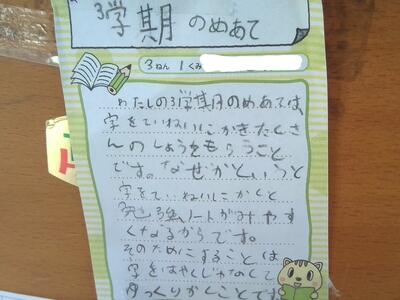 3学期のめあて
3ねん1くみ
わたしの3学期のめあては
字をていねいにかきたくさ
んのしょうをもらうこと
です。なぜかというと
字をていねいにかくと
勉強ノートがみやす
くなるからです。
そのためにすることは
字をはやくじゃなくて
ゆっくりかくことです